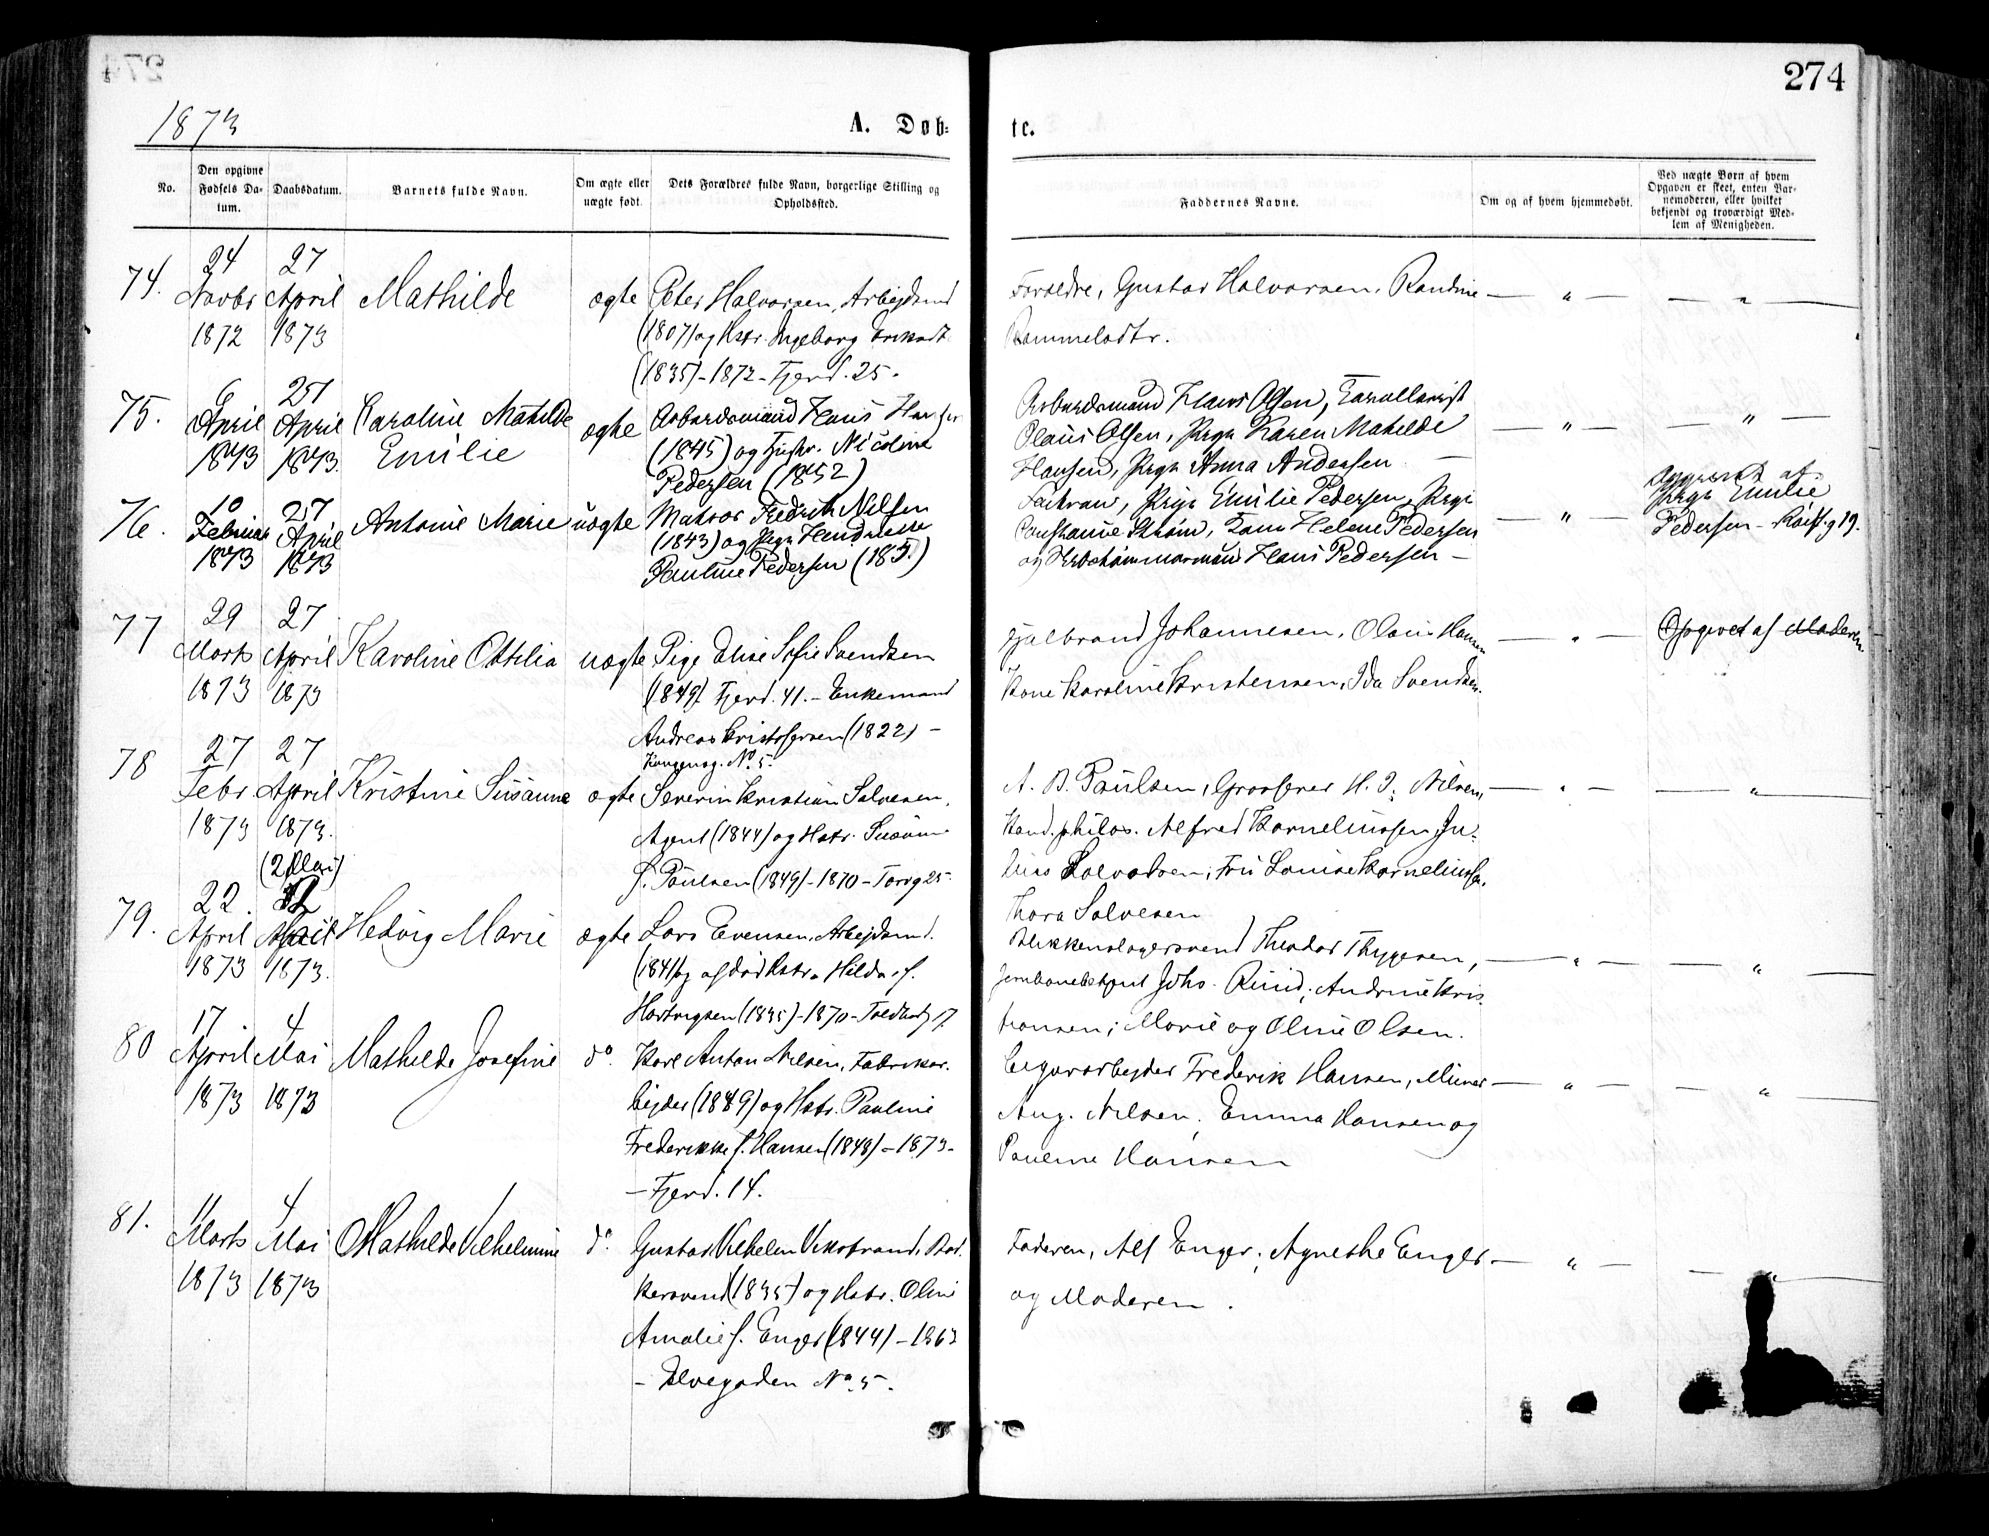 274
1873
A. Døb-
te.
No.
Den opgivne Fødsels Datum.
Daabsdatum.
Barnets fulde Navn.
Om ægte eller uægte født.
Dets Forældres fulde Navn, borgerlige Stilling og Opholdssted.
Faddernes Navne.
Om og af hvem hjemmedøbt.
Ved uægte Børn af hvem Opgaven er skeet, enten Barnemoderen, eller hvilket bekjendt og troværdigt Medlem af Menigheden.
74.
24 Novbr 1872
27 April 1873
Mathilde
ægte
Peter Halvorsen, Arbejdsmd
(1807) og Hstr. Ingeborg Eriksdt
(1835) - 1872 - Fjerd. 25.
Forældre, Gustav Halvorsen, Randine
75.
6 April 1873
27 April 1873.
Caroline Mathilde
Emilie
ægte
Arbeidsmand Hans Hansen
(1845) og Hustr. Nicoline
Pedersen (1852)
Arbeidsmand Klaus Olsen,
Olaus Olsen, Pige Karen Mathilde
Hansen, Pige Anna Andersen
76.
10 Februar 1873
27 April 1873
Antonie Marie
uægte
Matros Fredrik Nilsen
(1843) og Pige Hendrikke
Pauline Pedersen (185.)
Pige Emilie Pedersen, Pige
Helene Pedersen
og Hans Pedersen
Opgivet af
Pige Emilie
Pedersen
77
29 Marts 1873
27 April 1873
Karoline Ottilia
uægte
Pige Elise Sofie Svendsen
(1849) Fjerd. 41. - Enkemand
Andreas Kristofersen (1822) -
Kongensg. No 5.
Johannesen, Olaus Hansen
Kone Karoline Kristensen, Ida Svendsen.
Opgivet af Moderen
78
27 Febr 1873
27 April 1873.
(2 Mai)
Kristine Susanne
ægte
Severin Kristian Salvesen,
Agent (1844) og Hstr. Susanne
f. Paulsen (1849) - 1870 - Torvg 25
A. B. Paulsen, Grosserer H. J. Nilsen,
Kand. philos. Alfred Kornelinssen, Ju-
lius Salvesen, Fru Louise Kornelinssen,
Thora Salvesen
79.
22 April 1873
April 1873.
Hedvig Marie
ægte
Lars Evensen, Arbejdsmd.
(1841) og afdød Hstr. Hilda f.
Hartvigsen (1835) - 1870 - Toldbodg 17
Blikkenslagersvend Theodor Thygesen,
Johs. Ruud, Andrine Kris-
tiansen; Marie og Oline Olsen.
80
17 April 1873
4 Mai 1873
Mathilde Josefine
do.
Karl Anton Nilsen, Fabrikar-
bejder (1849) og Hstr. Pauline
Frederikke f. Hansen (1848) - 1873 -
- Fjerd. 14.
Cigararbejder Frederik Hansen, Murer
Aug. Nilsen, Emma Hansen og
Pauline Hansen
81.
11 Marts 1873
4 Mai 1873
Mathilde Vilhelmine
do.
Gustav Vilhelm Vikstrand, Bad-
kersvend (1835) og Hstr. Oline
Amalie f. Enger (1844) - 1863
- Elvegaden No 5.
Faderen, Alf Enger, Agnethe Enger
og Moderen.